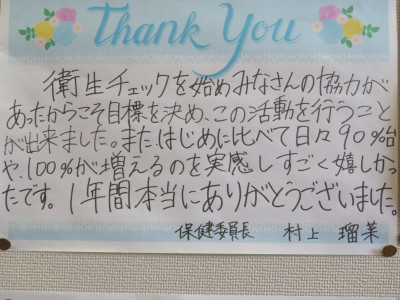 Thank You
衛生チェックを始めみなさんの協力が
あったからこそ目標を決め、この活動を行うこと
が出来ました。また、はじめに比べて日々90%台
や、100%が増えるのを実感しすごく嬉しかっ
たです。1年間本当にありがとうございました。
保健委員長 村上 瑠菜